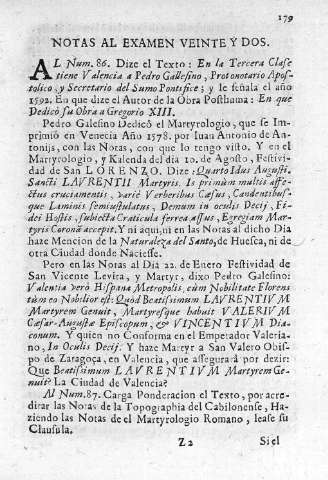 179
NOTAS AL EXAMEN VEINTE Y DOS.
AL Num. 86. Dize el Texto: En la Tercera Clase
tiene Valencia a Pedro Gallesino, Protonotario Apos-
tolico, y Secretario del Sumo Pontifice; y le señala el año
1592. En que dize el Autor de la Obra Posthuma: En que
Dedicò su Obra a Gregorio XIII.
Pedro Galesino Dedicò el Martyrologio, que se Im-
primiò en Venecia Año 1578. por Iuan Antonio de An-
tonijs, con las Notas, con que lo tengo visto. Y en el
Martyrologio, y Kalenda del dia 10. de Agosto, Festivi-
dad de San LORENZO. Dize: Quarto Idus Augusti,
Sancti LAVRENTII Martyris. Is primùm multis affe-
ctus cruciamentis, variè Verberibus Cæsus, Candentibus-
que Laminis semiustulatus, Demum in oculis Decij, Fi-
dei Hostis, subiecta Craticula ferrea assus, Egregiam Mar-
tyris Coronã accepit. Y ni aqui, ni en las Notas al dicho Dia
haze Mencion de la Naturaleza del Santo, de Huesca, ni de
otra Ciudad donde Naciesse.
Pero en las Notas al Dia 22. de Enero Festividad de
San Vicente Levita, y Martyr, dixo Pedro Galesino:
Valentia verò Hispana Metropolis, cùm Nobilitate Florens
tùm eo Nobilior est: Quòd Beatissimum LAVRENTIVM
Martyrem Genuit, Martyresque habuit VALERIVM
Cæsar-Augustæ Episcopum, & VINCENTIVM Dia-
conum. Y quien no Conforma en el Emperador Valeria-
no, In Oculis Decij. Y haze Martyr a San Valero Obis-
po de Zaragoça, en Valencia, que assegurarà por dezir:
Que Beatissimum LAVRENTIVM Martyrem Ge-
nuit? La Ciudad de Valencia?
Al Num. 87. Carga Ponderacion el Texto, por acre-
ditar las Notas de la Topographia del Cabilonense, Ha-
ziendo las Notas de el Martyrologio Romano, lease su
Clausula.
Z 2
Si el